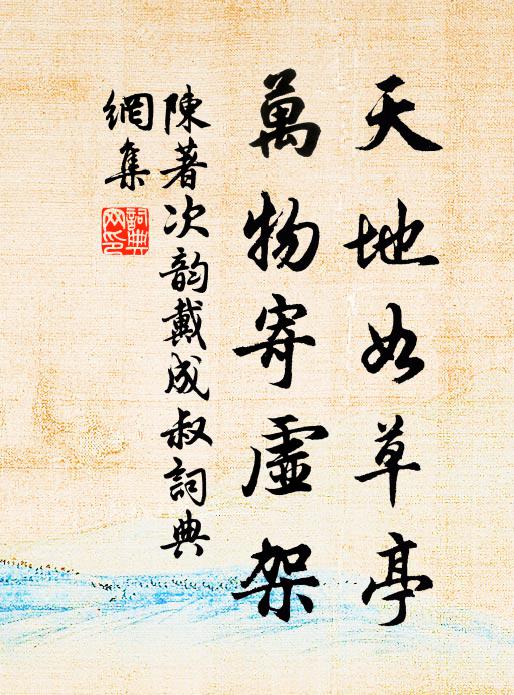 天地如草亭
萬物寄虛架
陳著次韵戴成叔詞典
網集
詞典網印